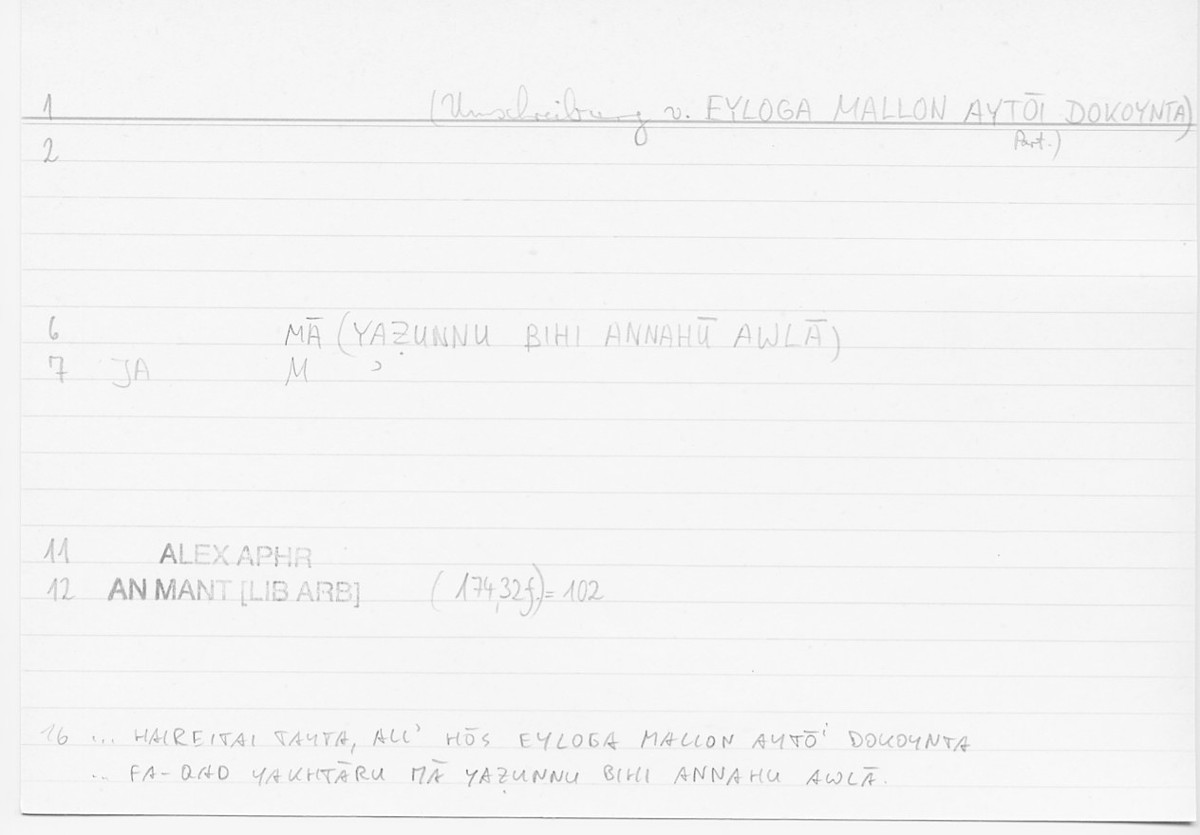 1 (Umschreibung v. EYLOGA MALLON AYTŌI DOKOYNTA)
Part.)
2
6 MĀ (YAẒUNNU BIHI ANNAHŪ AWLĀ)
7 JA M ʾ
11 ALEX APHR
12 AN MANT [LIB ARB] (174,32f.)= 102
16 ... HAIREITAI TAYTA, ALL' HŌS EYLOGA MALLON AYTŌⁱ DOKOYNTA
... FA-QAD YAKHTĀRU MĀ YAẒUNNU BIHI ANNAHU AWLĀ.